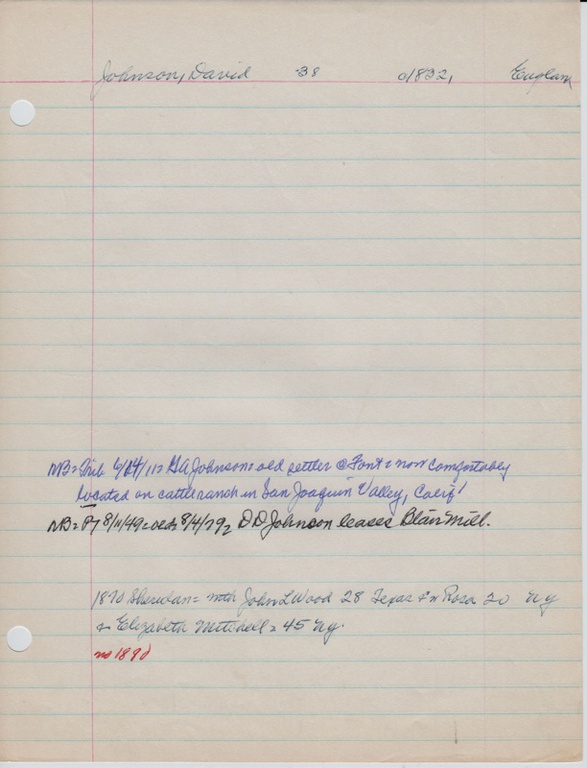 Johnson, David 38 c1832, England
NB = Trib 6/24/11 = GA Johnson = old settler @ Font = now comfortably
located on cattle ranch in San Joaquin Valley, Calif!
NB = 8/11/49 = 8/4/79 = D D Johnson leases Blair Mill.
1870 Sheridan = with John L Wood 28 Texas & w Rosa 20 Ny
& Elizabeth Mitchell = 45 Ny.
no 1890